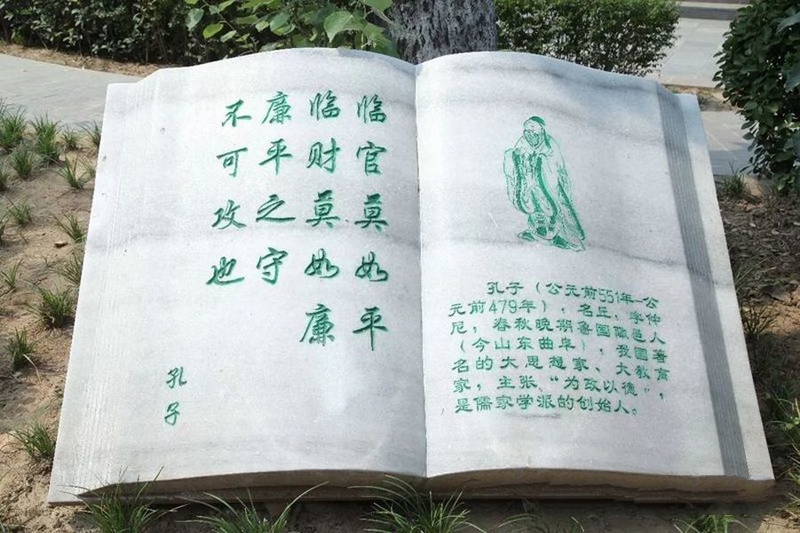 临官莫如平
临财莫如廉
廉平之守
不可攻也
孔子
孔子（公元前551年-公
元前479年），名丘，字仲
尼，春秋晚期鲁国陬邑人
（今山东曲阜），我国著
名的大思想家、大教育
家，主张“为政以德”，
是儒家学派的创始人。